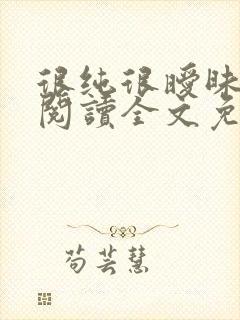 很纯很曖昧
閱讀全文免
苟芸慧